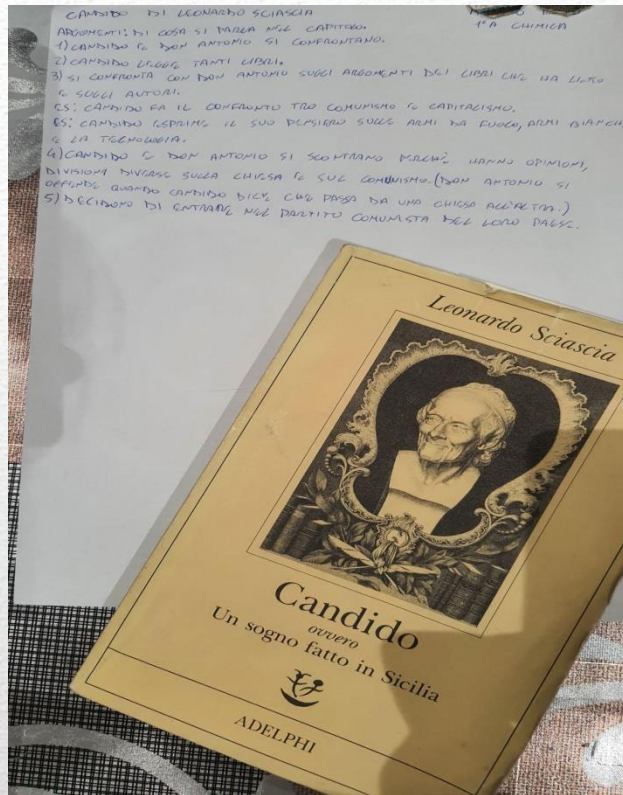 CANDIDO DI LEONARDO SCIASCIA
1ª A CHIMICA
ARGOMENTI: DI COSA SI PARLA NEL CAPITOLO.
1) CANDIDO E DON ANTONIO SI CONFRONTANO.
2) CANDIDO LEGGE TANTI LIBRI.
3) SI CONFRONTA CON DON ANTONIO SUGLI ARGOMENTI DEI LIBRI CHE HA LETTO
E SUGLI AUTORI.
ES: CANDIDO FA IL CONFRONTO TRO COMUNISMO E CAPITALISMO.
ES: CANDIDO ESPRIME IL SUO PENSIERO SULLE ARMI DA FUOCO, ARMI BIANCHE
E LA TECNOLOGIA.
4) CANDIDO E DON ANTONIO SI SCONTRANO PERCHÈ HANNO OPINIONI,
DIVISIONI DIVERSE SULLA CHIESA E SUL COMUNISMO. (DON ANTONIO SI
OFFENDE QUANDO CANDIDO DICE CHE PASSA DA UNA CHIESA ALL'ALTRA.)
5) DECIDONO DI ENTRARE NEL PARTITO COMUNISTA DEL LORO PAESE.
Leonardo Sciascia
Candido
ovvero
Un sogno fatto in Sicilia
ADELPHI